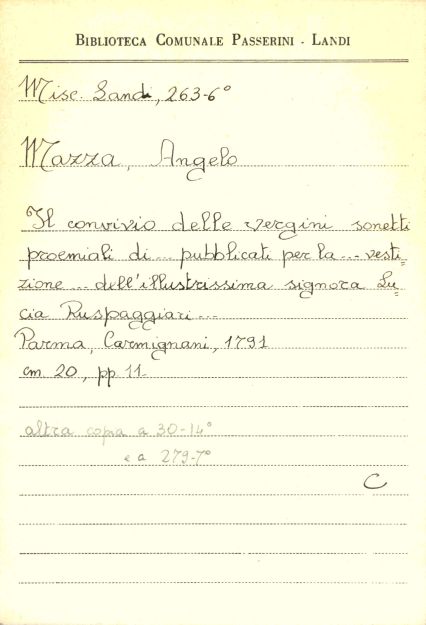 BIBLIOTECA COMUNALE PASSERINI - LANDI
Misc. Landi, 263-6°
Mazza, Angelo
Il convivio delle vergini sonetti
proemiali di ... pubblicati per la ... vesti=
zione ... dell'illustrissima signora Lu=
cia Ruspaggiari ...
Parma, Carmignani, 1791
cm. 20, pp 11.
altra copia a 30-14°
e a 279-7°
C